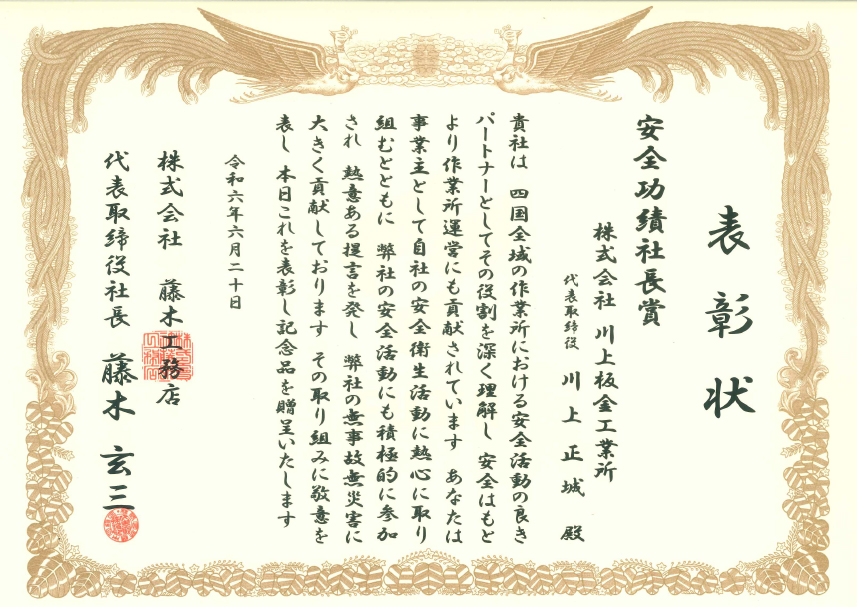 表彰状
安全功績社長賞
株式会社 川上板金工業所
代表取締役 川上 正城 殿
貴社は 四国全域の作業所における安全活動の良き
パートナーとしてその役割を深く理解し 安全はもと
より作業所運営にも貢献されています あなたは
事業主として自社の安全衛生活動に熱心に取り
組むとともに 弊社の安全活動にも積極的に参加
され 熱意ある提言を発し 弊社の無事故無災害に
大きく貢献しております その取り組みに敬意を
表し 本日これを表彰し記念品を贈呈いたします
令和六年六月二十日
株式会社 藤木工務店
代表取締役社長 藤木 玄三